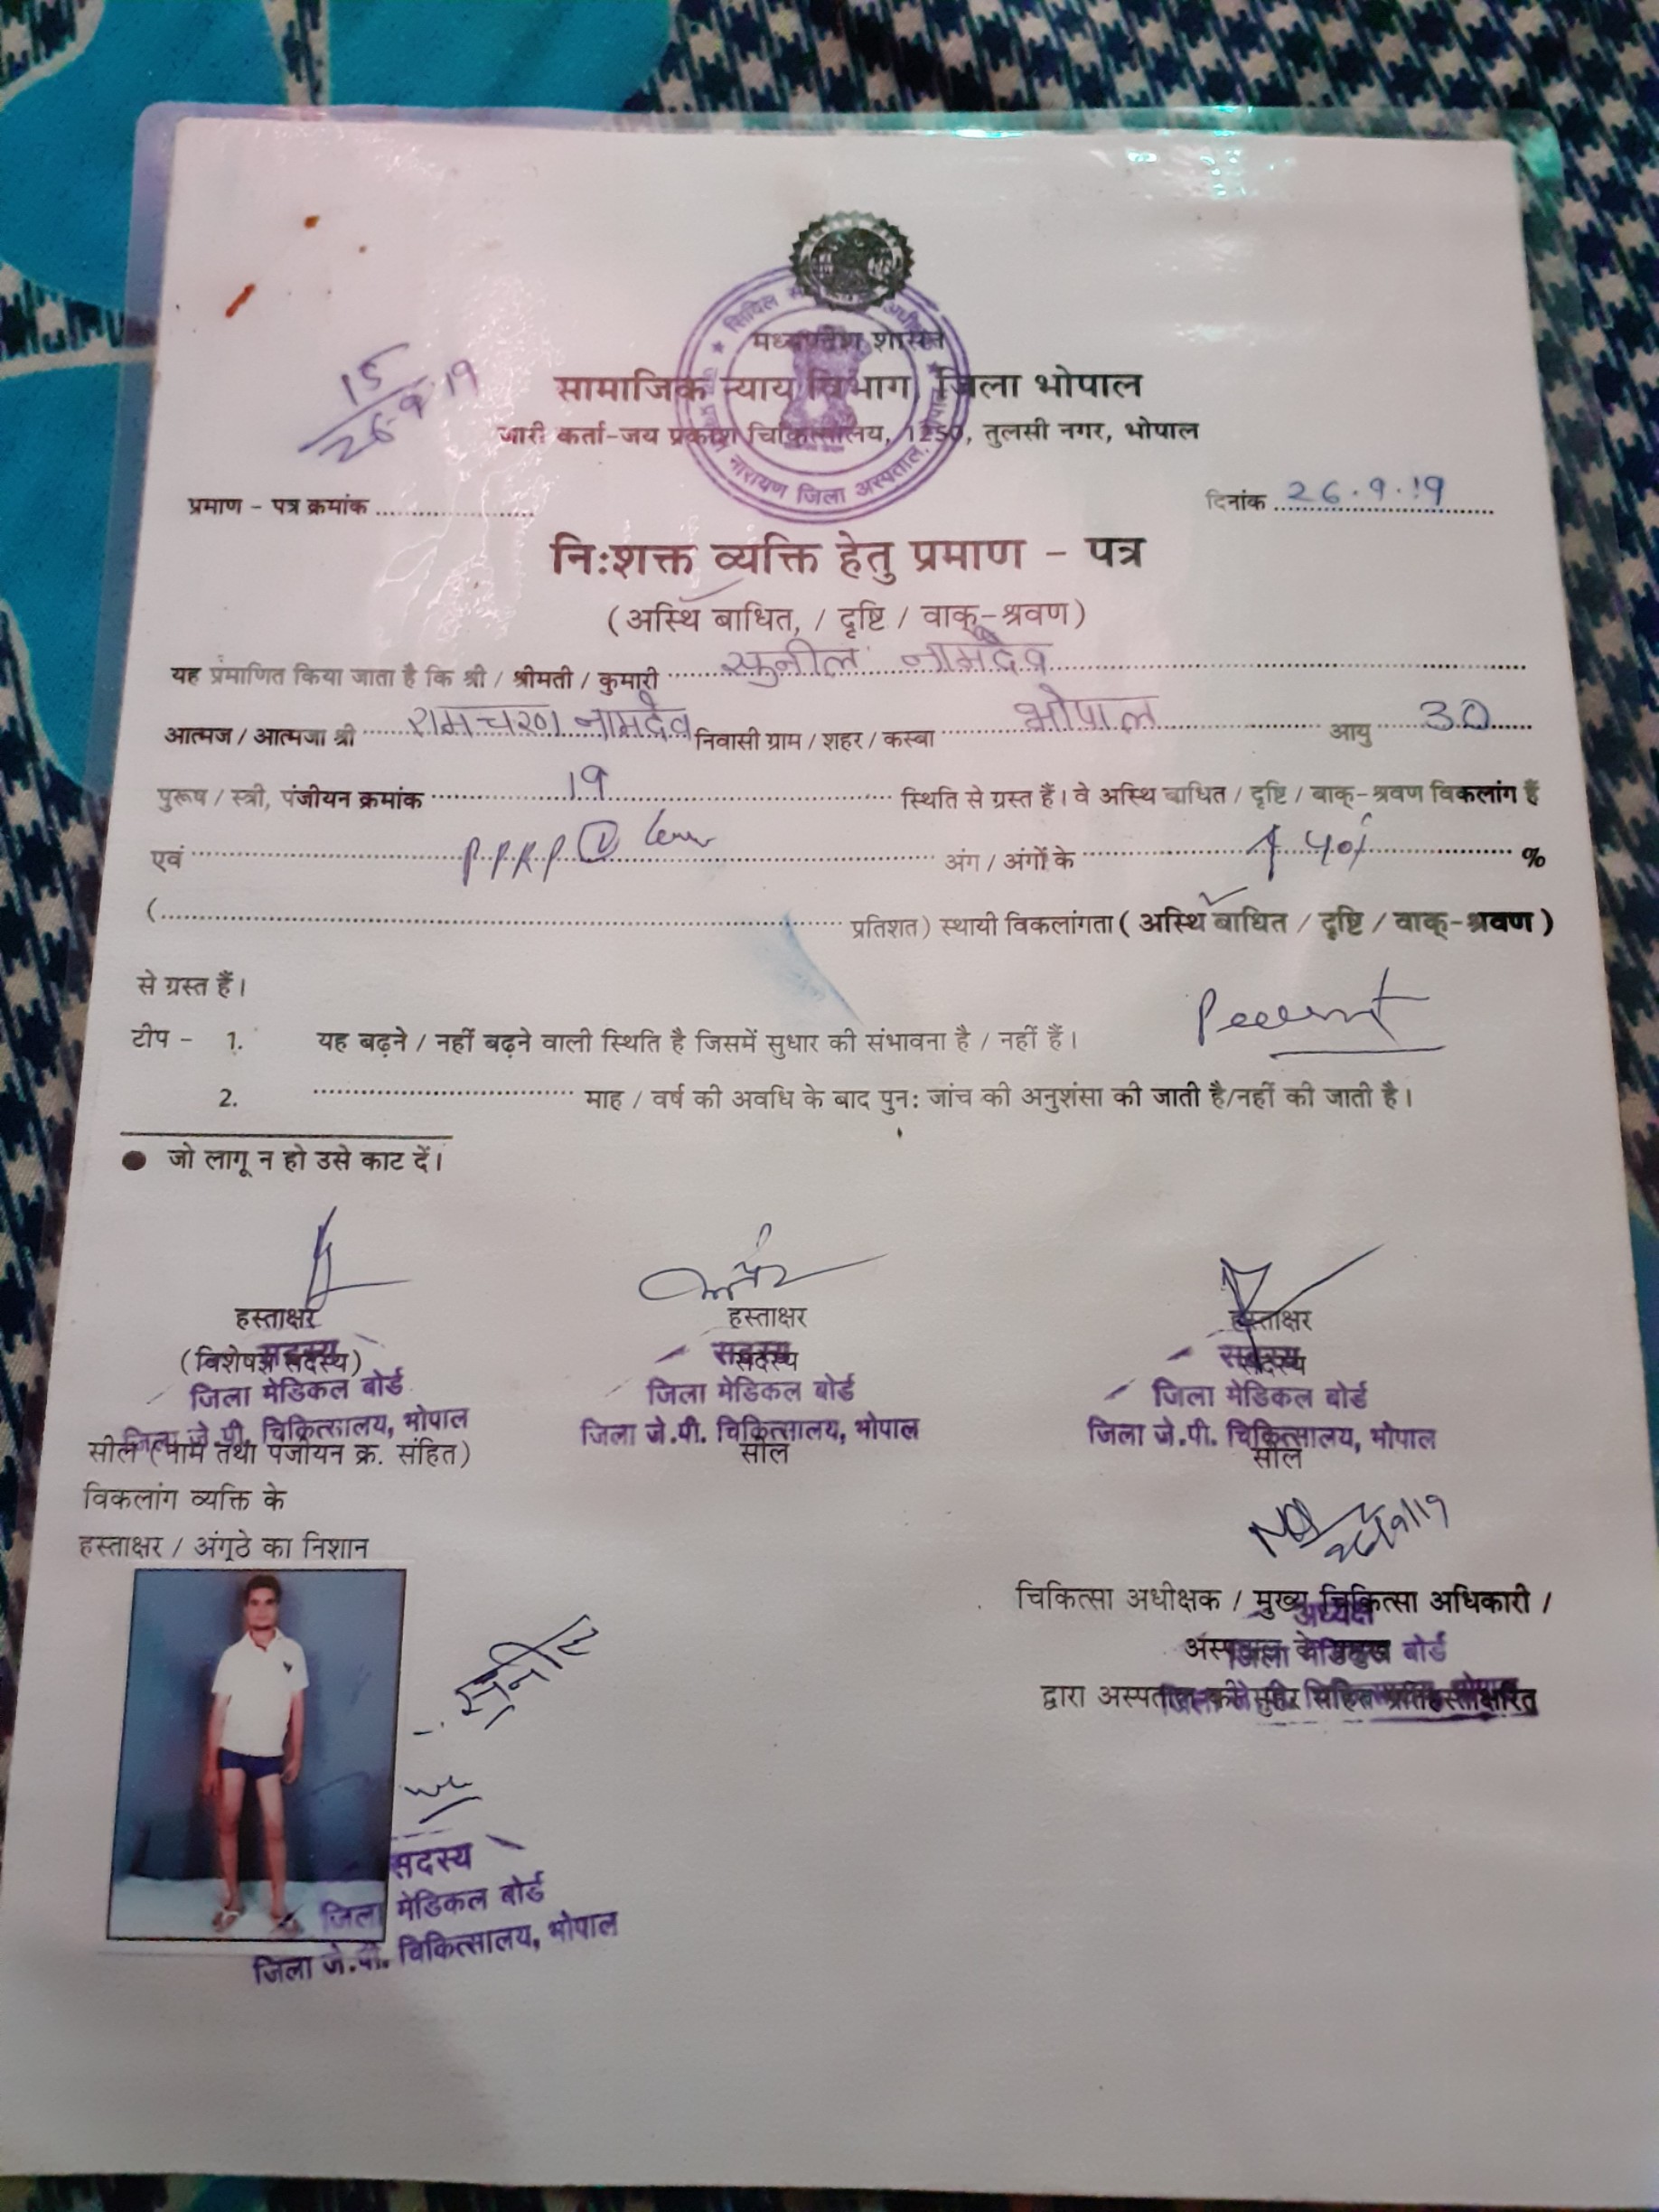 15
26-9-19
मध्यप्रदेश शासन
सामाजिक न्याय विभाग, जिला भोपाल
जारी कर्ता-जय प्रकाश चिकित्सालय, 1250, तुलसी नगर, भोपाल
नारायण जिला अस्पताल,
प्रमाण - पत्र क्रमांक .................... दिनांक 26.9.19
नि:शक्त व्यक्ति हेतु प्रमाण - पत्र
(अस्थि बाधित, / दृष्टि / वाक्-श्रवण)
यह प्रमाणित किया जाता है कि श्री / श्रीमती / कुमारी सुनील नामदेव
आत्मज / आत्मजा श्री रामचरण नामदेव निवासी ग्राम / शहर / कस्बा भोपाल आयु 30
पुरूष / स्त्री, पंजीयन क्रमांक 19 स्थिति से ग्रस्त हैं। वे अस्थि बाधित / दृष्टि / बाक्-श्रवण विकलांग हैं
एवं PPRP अंग / अंगों के %
(.................... प्रतिशत) स्थायी विकलांगता ( अस्थि बाधित / दृष्टि / वाक्-श्रवण )
से ग्रस्त हैं।
टीप - 1. यह बढ़ने / नहीं बढ़ने वाली स्थिति है जिसमें सुधार की संभावना है / नहीं हैं।
2. .................... माह / वर्ष की अवधि के बाद पुन: जांच की अनुशंसा की जाती है/नहीं की जाती है।
● जो लागू न हो उसे काट दें।
हस्ताक्षर हस्ताक्षर हस्ताक्षर
(विशेषज्ञ सदस्य) सदस्य सदस्य
जिला मेडिकल बोर्ड जिला मेडिकल बोर्ड जिला मेडिकल बोर्ड
जिला जे.पी. चिकित्सालय, भोपाल जिला जे.पी. चिकित्सालय, भोपाल जिला जे.पी. चिकित्सालय, भोपाल
सील (नाम तथा पंजीयन क्र. संहित) सील सील
विकलांग व्यक्ति के
हस्ताक्षर / अंगूठे का निशान
26/9/19
चिकित्सा अधीक्षक / मुख्य चिकित्सा अधिकारी /
अध्यक्ष
अस्पताल के प्रमुख
जिला मेडिकल बोर्ड
द्वारा अस्पताल की मुहर सहित प्रतिहस्ताक्षरित
सुनील
सदस्य
जिला मेडिकल बोर्ड
जिला जे.पी. चिकित्सालय, भोपाल